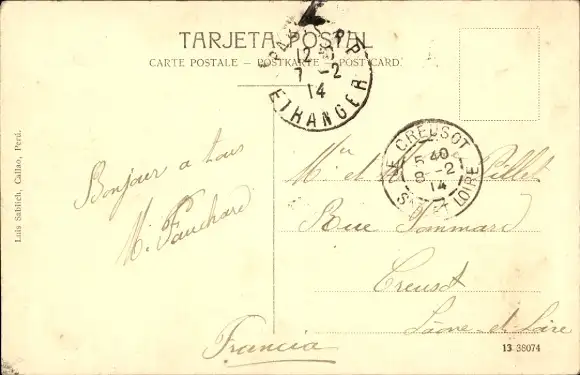 TARJETA POSTAL
CARTE POSTALE – POSTKARTE – POST CARD.
PARIS R.P.
12
7 -2
14
ETRANGER
LE CREUSOT
5 40
8 -2
14
SAONE ET LOIRE
Luis Sablich, Callao, Perú.
Bonjour a tous
M. Fauchard
Mr et Pillet
Rue Pommard
Creusot
Saone-et-Loire
Francia
13 38074